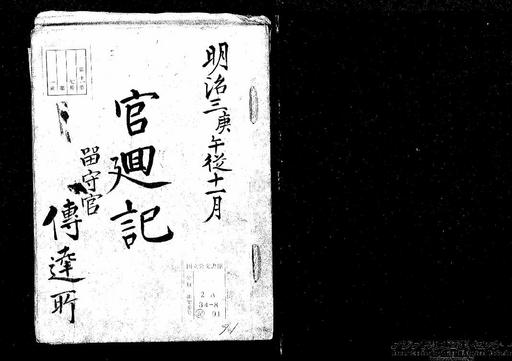 明治三庚午従十一月
官廻記
留守官
傳達所
国立公文書館
2A
34-8
91
91